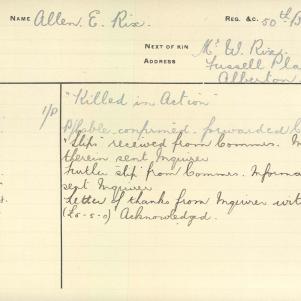 NAME Allen E. Rix.
REG. &c. 50th B
NEXT OF KIN Mr W. Rix
Fussell Pla
Alberton
"Killed in Action"
1/P confirmed. forwarded
"slip" received from Commrs. In
therein sent Inquirer
further slip from Commrs. Informa
sent Inquirer
Letter of thanks from Inquirer wit
(£0-5-0) Acknowledged.
s.